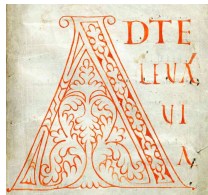 ADTE
LEUA
UI
A